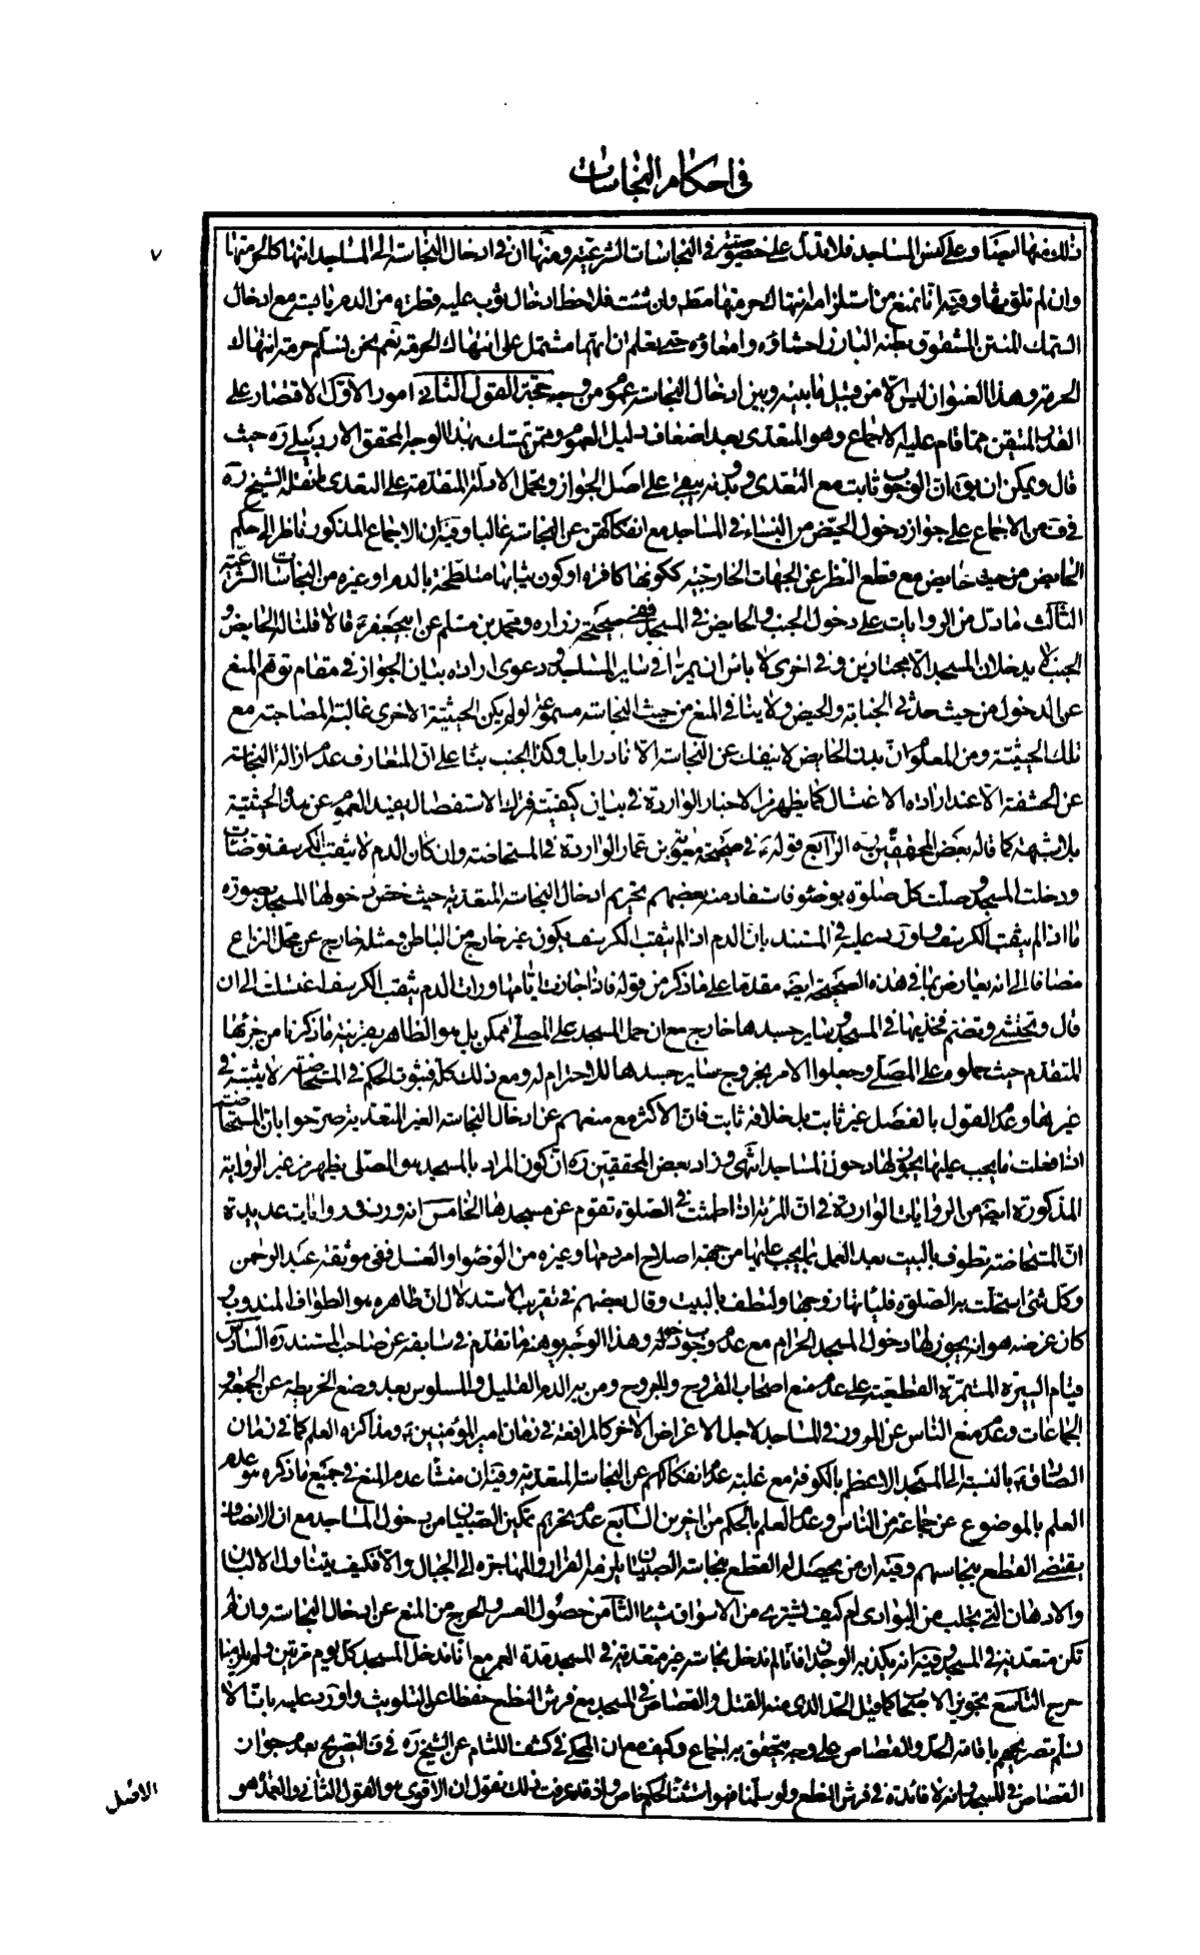 في احكام النجاسات
٧
ذلك فيها ايضا وعلى كنس المساجد فلا تدل على خصوصيته في النجاسات الشرعية ومنها ان في ادخال النجاسة الى المساجد انتهاكا لحرمتها
وان لم تلوثها وفيه انا نمنع من استلزامه انتهاك حرمتها مطلقا وان شئت فلاحظ ادخال ثوب عليه قطرة من الدم يابسة مع ادخال
السمك المنتن المشقوق بطنه البارز احشاؤه وامعاؤه حتى تعلم ان ايهما مشتمل على انتهاك الحرمة نعم نحن نسلم حرمة انتهاك
الحرمة وهذا العنوان ليس الا من قبيل ما بينه وبين ادخال النجاسة عموم من وجه حجة القول الثاني امور الاول الاقتصار على
القدر المتيقن مما قام عليه الاجماع وهو المتعدى بعد اضعاف دليل العموم وممن تمسك بهذا الوجه المحقق الاردبيلي ره حيث
قال ويمكن ان يق ان الوجوب ثابت مع التعدى وبدونه يبقى على اصل الجواز ويحمل الادلة المتقدمة على التعدى لما نقله الشيخ ره
في ف من الاجماع على جواز دخول الحيض من النساء في المساجد مع عدم انفكاكهن عن النجاسة غالبا وفيه ان الاجماع المذكور ناظر الى حكم
الحايض من حيث حايض مع قطع النظر عن الجهات الخارجية ككونها كافرة او كون ثيابها متلطخة بالدم او غيره من النجاسات الشرعية
الثالث ما دل من الروايات على دخول الجنب والحايض في المسجد ففي صحيحة زرارة ومحمد بن مسلم عن ابي جعفر ع قالا قلنا له الحايض و
الجنب يدخلان المسجد الا مجتازين وفي اخرى لا باس ان يمرا في ساير المساجد ودعوى ارادة بيان الجواز في مقام توهم المنع
عن الدخول من حيث حدثي الجنابة والحيض ولا ينافي المنع من حيث النجاسة مسموعة لو لم يكن الحيثية الاخرى غالبة المصاحبة مع
تلك الحيثية ومن المعلوم ان بدن الحايض لا ينفك عن النجاسة الا نادرا بل وكذا الجنب بناء على ان المتعارف عدم ازالة النجاسة
عن الحشفة الا عند ارادة الاغتسال كما يظهر من الاخبار الواردة في بيان كيفيته فترك الاستفصال يفيد العموم عن هذه الحيثية
بلا شبهة كما قاله بعض المحققين ره الرابع قوله ع في صحيحة معوية بن عمار الواردة في المستحاضة وان كان الدم لا يثقب الكرسف توضات
ودخلت المسجد وصلت كل صلوة بوضوء فاستفاد منه بعضهم تحريم ادخال النجاسة المتعدية حيث خص دخولها المسجد بصورة
ما اذا لم يثقب الكرسف واورد عليه في المستند بان الدم اذا لم يثقب الكرسف يكون غير خارج من الباطن ومثله خارج عن محل النزاع
مضافا الى انه يعارض بما في هذه الصحيحة ايضا مقدما على ما ذكر من قوله فاذا جازت ايامها ورات الدم يثقب الكرسف اغتسلت الى ان
قال وتحتشى وتضم فخذيها في المسجد وساير جسدها خارج مع ان حمل المسجد على المصلى ممكن بل هو الظاهر بقرينة ما ذكرنا من جزئها
المتقدم حيث حملوه على المصلى وجعلوا الامر بخروج ساير جسدها للاحترام له ومع ذلك كله فثبوت الحكم في المستحاضة لا يثبته في
غيرها وعدم القول بالفصل غير ثابت بل خلافه ثابت فان الاكثر مع منعهم عن ادخال النجاسة الغير المتعدية صرحوا بان المستحاضة
اذا فعلت ما يجب عليها يجوز لها دخول المساجد انتهى وزاد بعض المحققين ره ان كون المراد بالمسجد هو المصلى يظهر من غير الرواية
المذكورة ايضا من الروايات الواردة في ان المرئة اذا طمثت في الصلوة تقوم عن مسجدها الخامس انه ورد في روايات عديدة
ان المستحاضة تطوف بالبيت بعد العمل بما يجب عليها من جهة اصلاح امر دمها وغيره من الوضوء والغسل ففي موثقة عبد الرحمن
وكل شئ استحلت به الصلوة فلياتها زوجها ولتطف بالبيت وقال بعضهم في تقريب الاستدلال ان ظاهره هو الطواف المندوب و
كان غرضه هو انه يجوز لها دخول المسجد الحرام مع عدم وجوب دخوله وهذا الوجه يوهنه ما تقدم في سابقه عن صاحب المستند ره السادس
قيام السيرة المستمرة القطعية على عدم منع اصحاب القروح والجروح ومن به الدم القليل والمسلوس بعد وضع الخريطة عن الجمعة و
الجماعات وعدم منع الناس عن المرور في المساجد لاجل الاغراض الاخر كالمرافعة في زمان امير المؤمنين ع ومذاكرة العلم كما في زمان
الصادق ع بالنسبة الى المسجد الاعظم بالكوفة مع غلبة عدم انفكاكهم عن النجاسة المتعدية وفيه ان منشأ عدم المنع في جميع ما ذكره هو عدم
العلم بالموضوع عن جماعة من الناس وعدم العلم بالحكم من اخرين السابع عدم تحريم تمكين الصبيان من دخول المساجد مع ان الانصاف
يقتضى القطع بنجاستهم وفيه ان من يحصل له القطع بنجاسة الصبيان يلزمه الفرار والمهاجرة الى الجبال والا فكيف يتناول الالبان
والادهان التي يجلب من البوادى ام كيف يشترى من الاسواق شيئا الثامن حصول العسر والحرج من المنع عن ادخال النجاسة وان لم
تكن متعدية في المسجد وفيه انه يكذبه الوجدان فانا لم ندخل نجاسة غير متعدية في المسجد مدة العمر مع انا ندخل المسجد كل يوم مرتين ولم يلزمنا
حرج التاسع تجويز الاصحاب كما قيل الحد الذى منه القتل والقصاص في المسجد مع فرش النطع حفظا عن التلويث واورد عليه بانا لا
نسلم تصريحهم باقامة الحد والقصاص على وجه يتحقق به اجماع وكيف مع ان المحكى في كشف اللثام عن الشيخ ره في ف التصريح بعدم جواز
القصاص في المسجد وانه لا فائدة في فرش النطع ولو سلمنا فهو استثناء لحكم خاص واذ قد عرفت ذلك نقول ان الاقوى هو القول الثاني والعمدة هو
الاصل